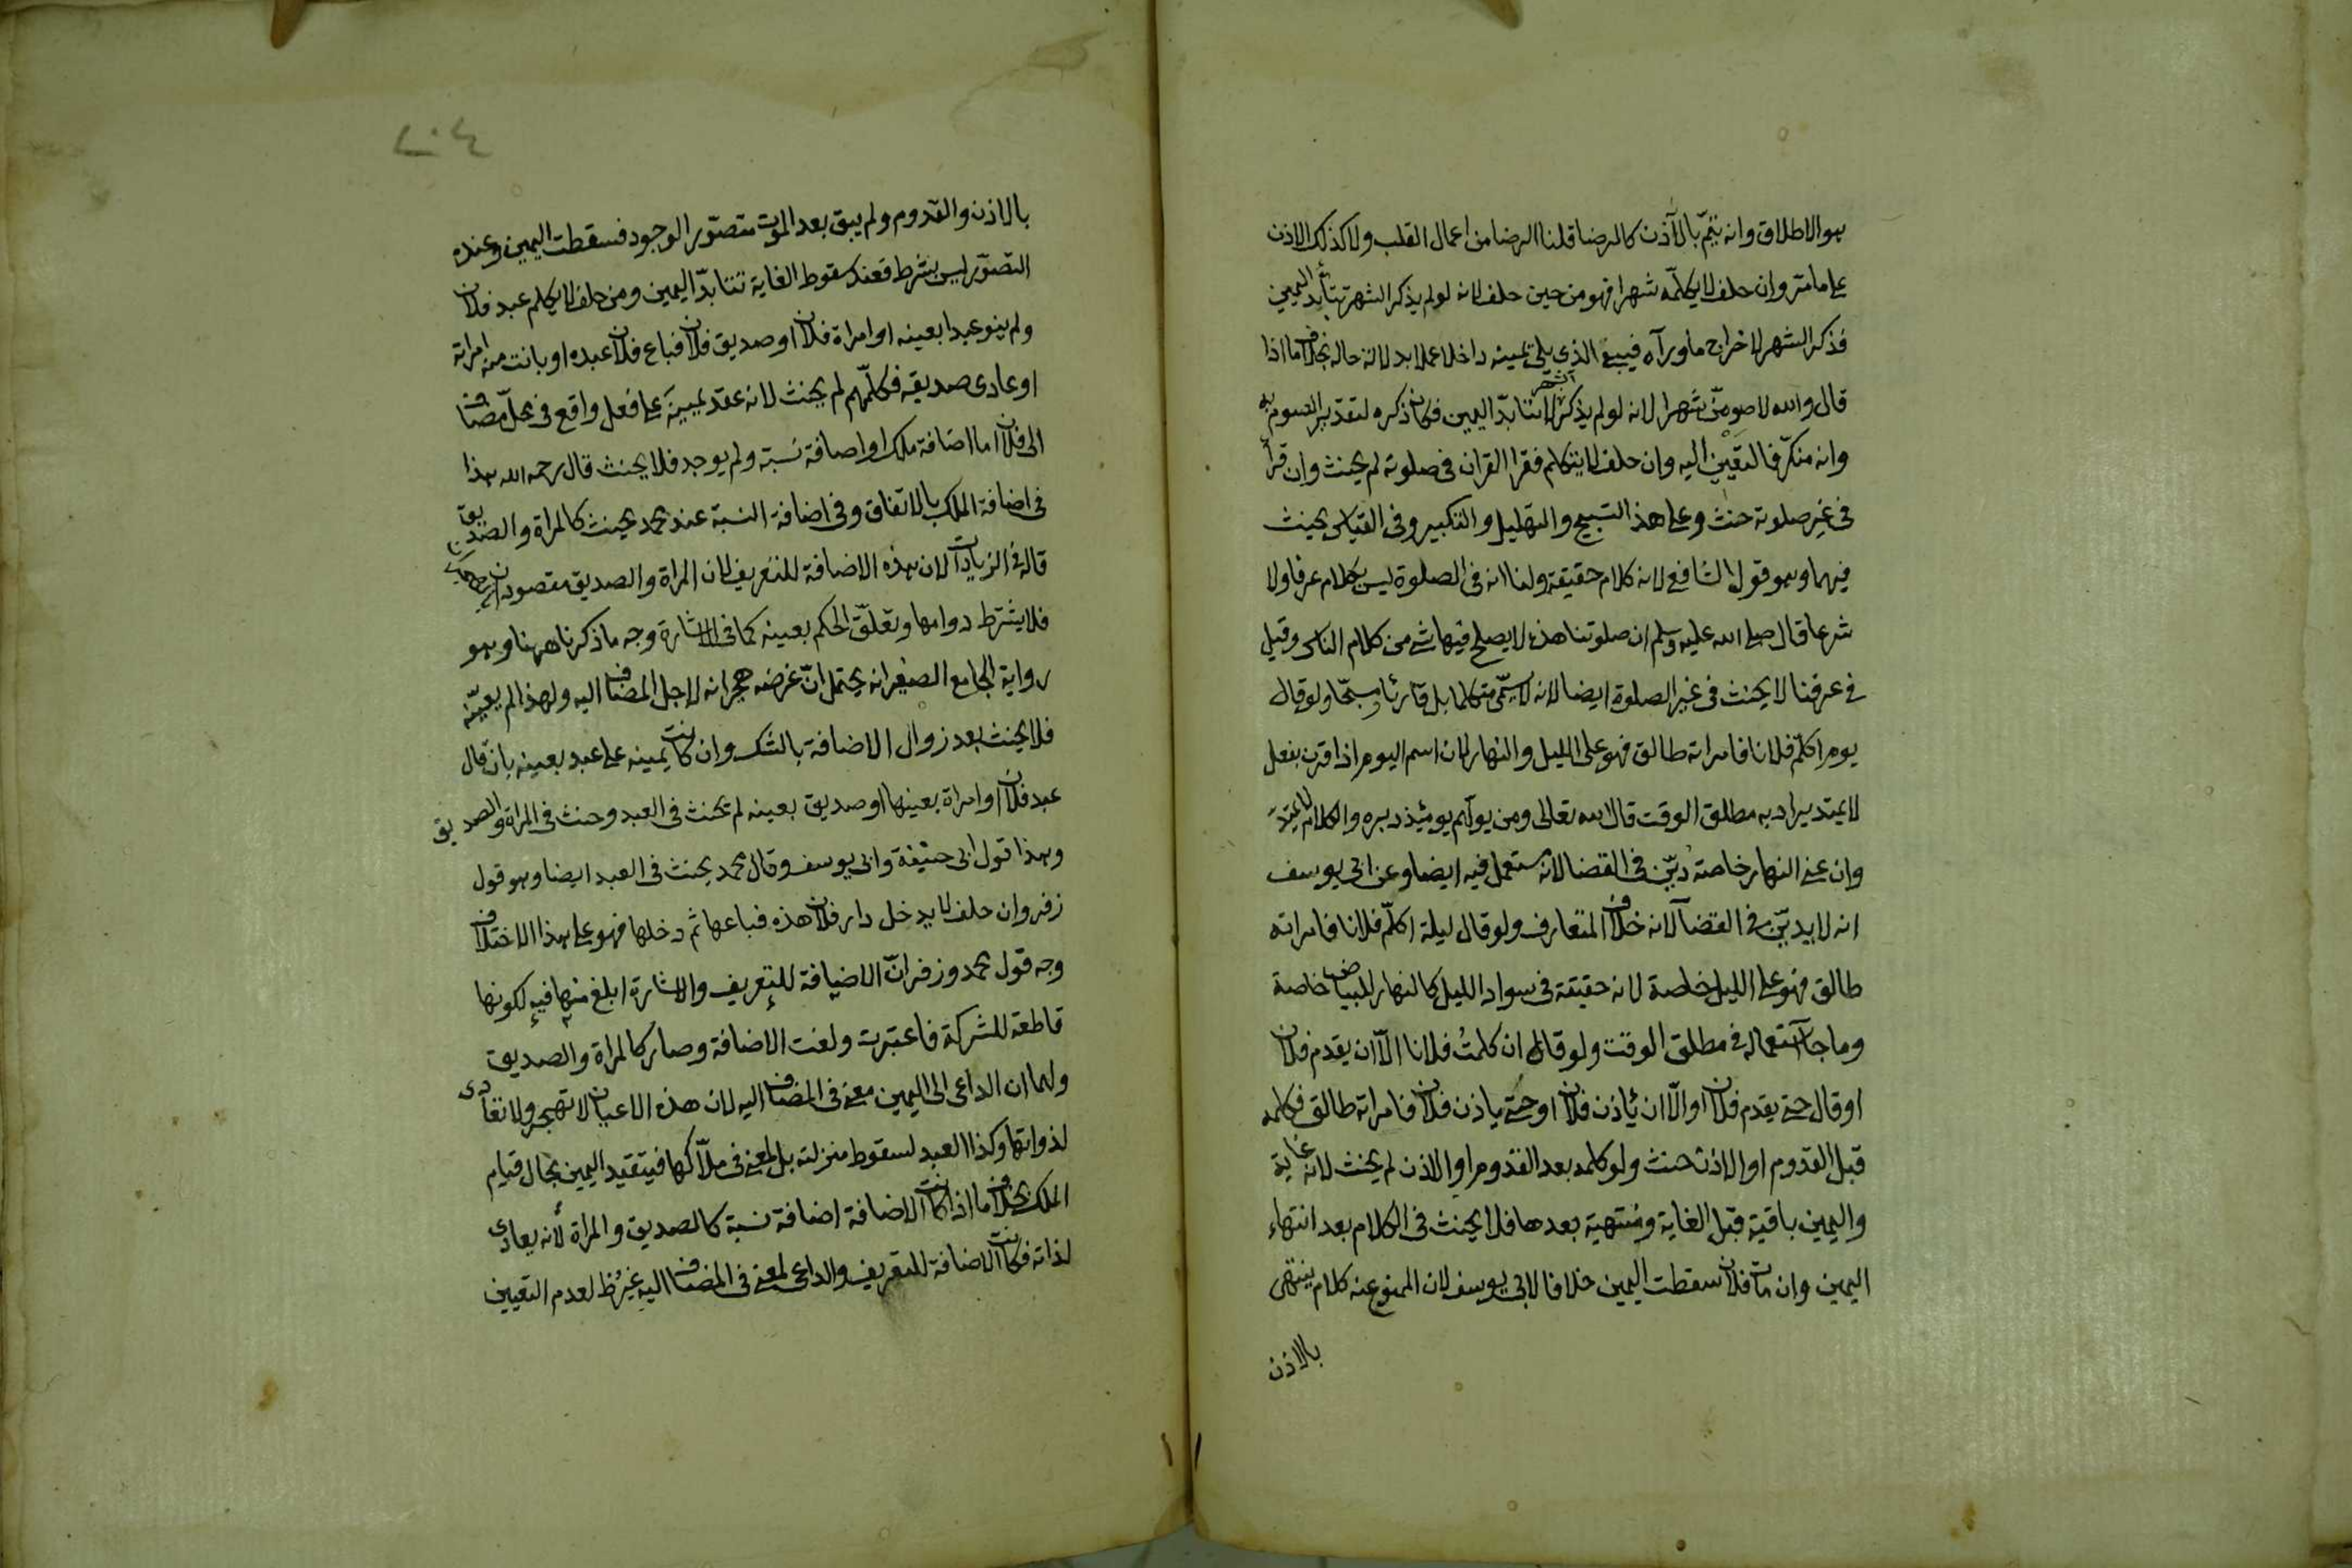 هو الاطلاق وانه يتمّ بالآذن كالرضا قلنا الرضا من اعمال القلب ولا كذلك الاذن
على ما مرّ وان حلف لا يكلّمه شهرا فهو من حين حلف لانه لو لم يذكر الشهر تتأبد اليمين
فذكر الشهر لاخراج ما ورآه فيبقى الذي يلي يمينه داخلا عملا بدلالة حاله بخلاف ما اذا
قال والله لاصومنّ شهرا لانه لو لم يذكر الشهر لا تتابّد اليمين فكان ذكره لتقدير الصوم به
وانه منكرّ فالتعيين اليه وان حلف لا يتكلم فقرا القران في صلوته لم يحنث وان قرأ
في غير صلوته حنث وعلى هذا التسبيح والتهليل والتكبير وفي القياس يحنث
فيهما وهو قول الشافعي لانه كلام حقيقة ولنا انه في الصلوة ليس بكلام عرفا ولا
شرعا قال صلى الله عليه وسلم ان صلوتنا هذه لا يصلح فيها شي من كلام الناس وقيل
في عرفنا لا يحنث في غير الصلوة ايضا لانه لا يسمّى متكلما بل قارئا ومسبّحا ولو قال
يوم اكلّم فلانا فامراته طالق فهو على الليل والنهار لان اسم اليوم اذا قرن بفعل
لا يمتد يراد به مطلق الوقت قال الله تعالى ومن يولّهم يومئذ دبره والكلام لا يمتدّ
وان عنى النهار خاصة ديّن في القضا لانه مستعمل فيه ايضا وعن ابي يوسف
انه لا يديّن في القضآ لانه خلاف المتعارف ولو قال ليلة اكلّم فلانا فامراته
طالق فهو على الليل خاصة لانه حقيقة في سواد الليل كالنهار للبياض خاصة
وما جآ استعماله في مطلق الوقت ولو قال ان كلمت فلانا الّا ان يقدم فلان
او قال حتى يقدم فلان او الّا ان يأذن فلان او حتى ياذن فلان فامراته طالق فكلمه
قبل القدوم او الاذن حنث ولو كلمه بعد القدوم او الاذن لم يحنث لانه غاية
واليمين باقية قبل الغاية ومنتهية بعدها فلا يحنث في الكلام بعد انتهاء
اليمين وان مات فلان سقطت اليمين خلافا لابي يوسف لان الممنوع عنه كلام ينتهى
بالاذن
٢٠٤
بالاذن والقدوم ولم يبق بعد الموت متصوّر الوجود فسقطت اليمين وعنده
التصوّر ليس بشرط فعند سقوط الغاية تتابدّ اليمين ومن حلف لا يكلم عبد فلان
ولم ينو عبدا بعينه او امراة فلان او صديق فلان فباع فلان عبده او بانت منه امراته
او عادى صديقه فكلّمهم لم يحنث لانه عقد يمينه على فعل واقع في محلّ مضاف
الى فلان اما اضافة ملك او اضافة نسبة ولم يوجد فلا يحنث قال رحمه الله هذا
في اضافة الملك بالاتفاق وفي اضافة النسبة عند محمد يحنث كالمراة والصديق
قاله في الزيادات لان هذه الاضافة للتعريف لان المراة والصديق مقصودان بالهجران
فلا يشترط دوامها وتعلّق الحكم بعينه كما في الاشارة وجه ما ذكرنا ههنا وهو
رواية الجامع الصغير انه يحتمل انّ غرضه هجرانه لاجل المضاف اليه ولهذا لم يعيّنه
فلا يحنث بعد زوال الاضافة بالشك وان كانت يمينه على عبد بعينه بان قال
عبد فلان او امراة بعينها او صديق بعينه لم يحنث في العبد وحنث في المراة والصديق
وهذا قول ابي حنيفة وابي يوسف وقال محمد يحنث في العبد ايضا وهو قول
زفر وان حلف لا يدخل دار فلان هذه فباعها ثم دخلها فهو على هذا الاختلاف
وجه قول محمد وزفر انّ الاضافة للتعريف والاشارة ابلغ منها فيه لكونها
قاطعة للشركة فاعتبرت ولغت الاضافة وصار كالمراة والصديق
ولهما ان الداعى الى اليمين معنى في المضاف اليه لان هذه الاعيان لا تهجر ولا تعادى
لذواتها وكذا العبد لسقوط منزلته بل لمعنى في ملّاكها فيتقيد اليمين بحال قيام
الملك بخلاف ما اذا كانت الاضافة اضافة نسبة كالصديق والمراة لأنه يعادى
لذاته فكانت الاضافة للتعريف والداعى لمعنى في المضاف اليه غير ظ لعدم التعيين